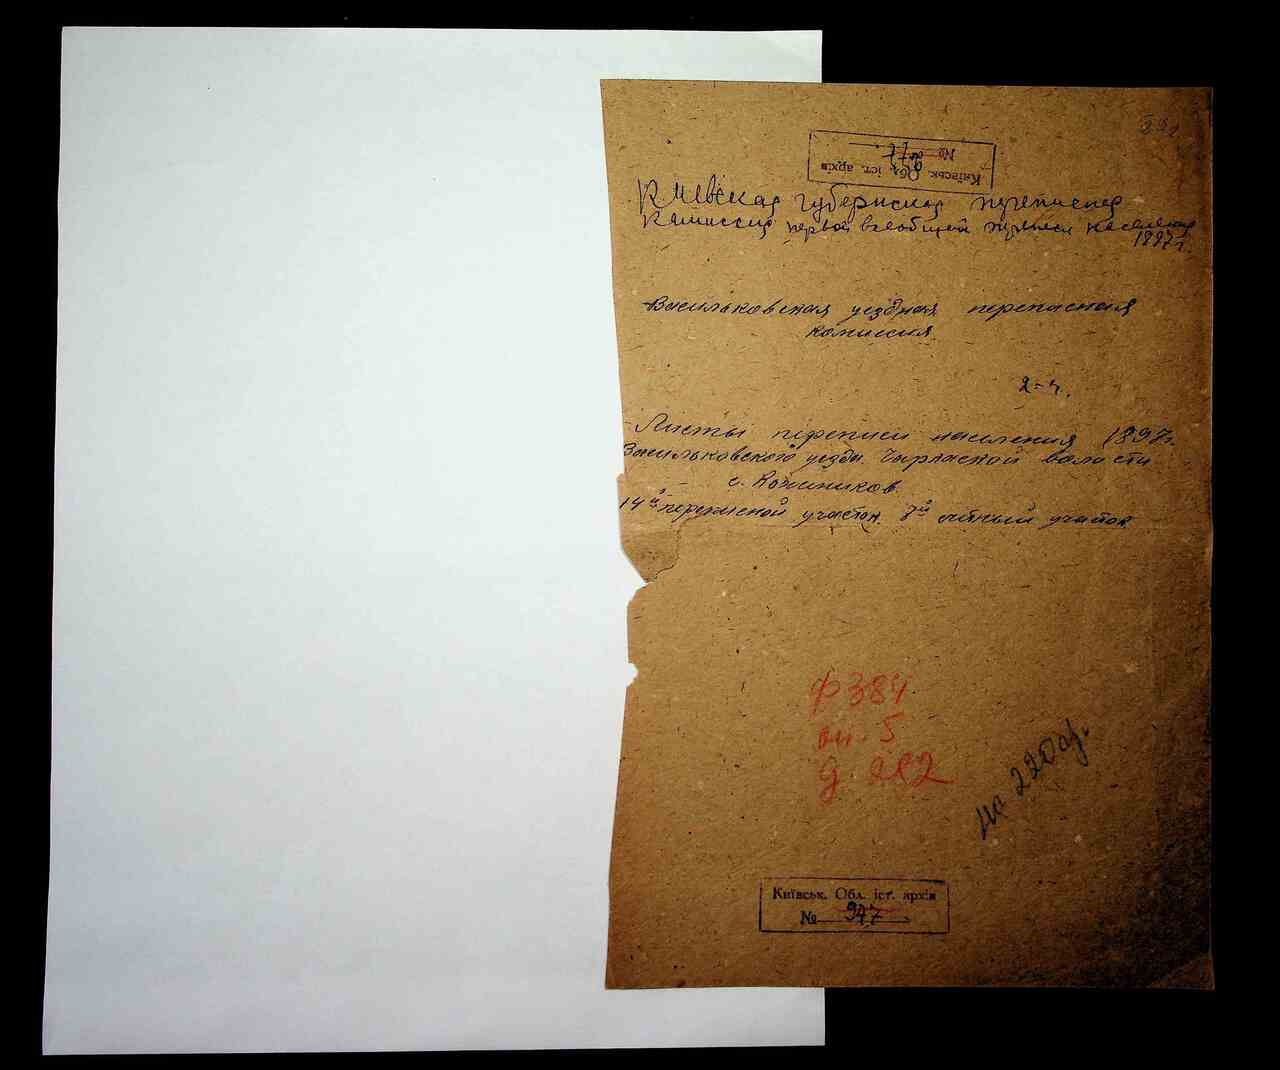 Київськ. Обл. іст. архів
№
Киевская губернская переписная
комиссия первой всеобщей переписи населения
1897 г.
Васильковская уездная переписная
комиссия
2-ч.
Листы переписи населения 1897 г.
Васильковского уезда. волости
с. Кожеников
14й переписной участок 7й счётный участок
ф 384
оп. 5
д 222
на 220 ар.
Київськ. Обл. іст. архів
№ 947